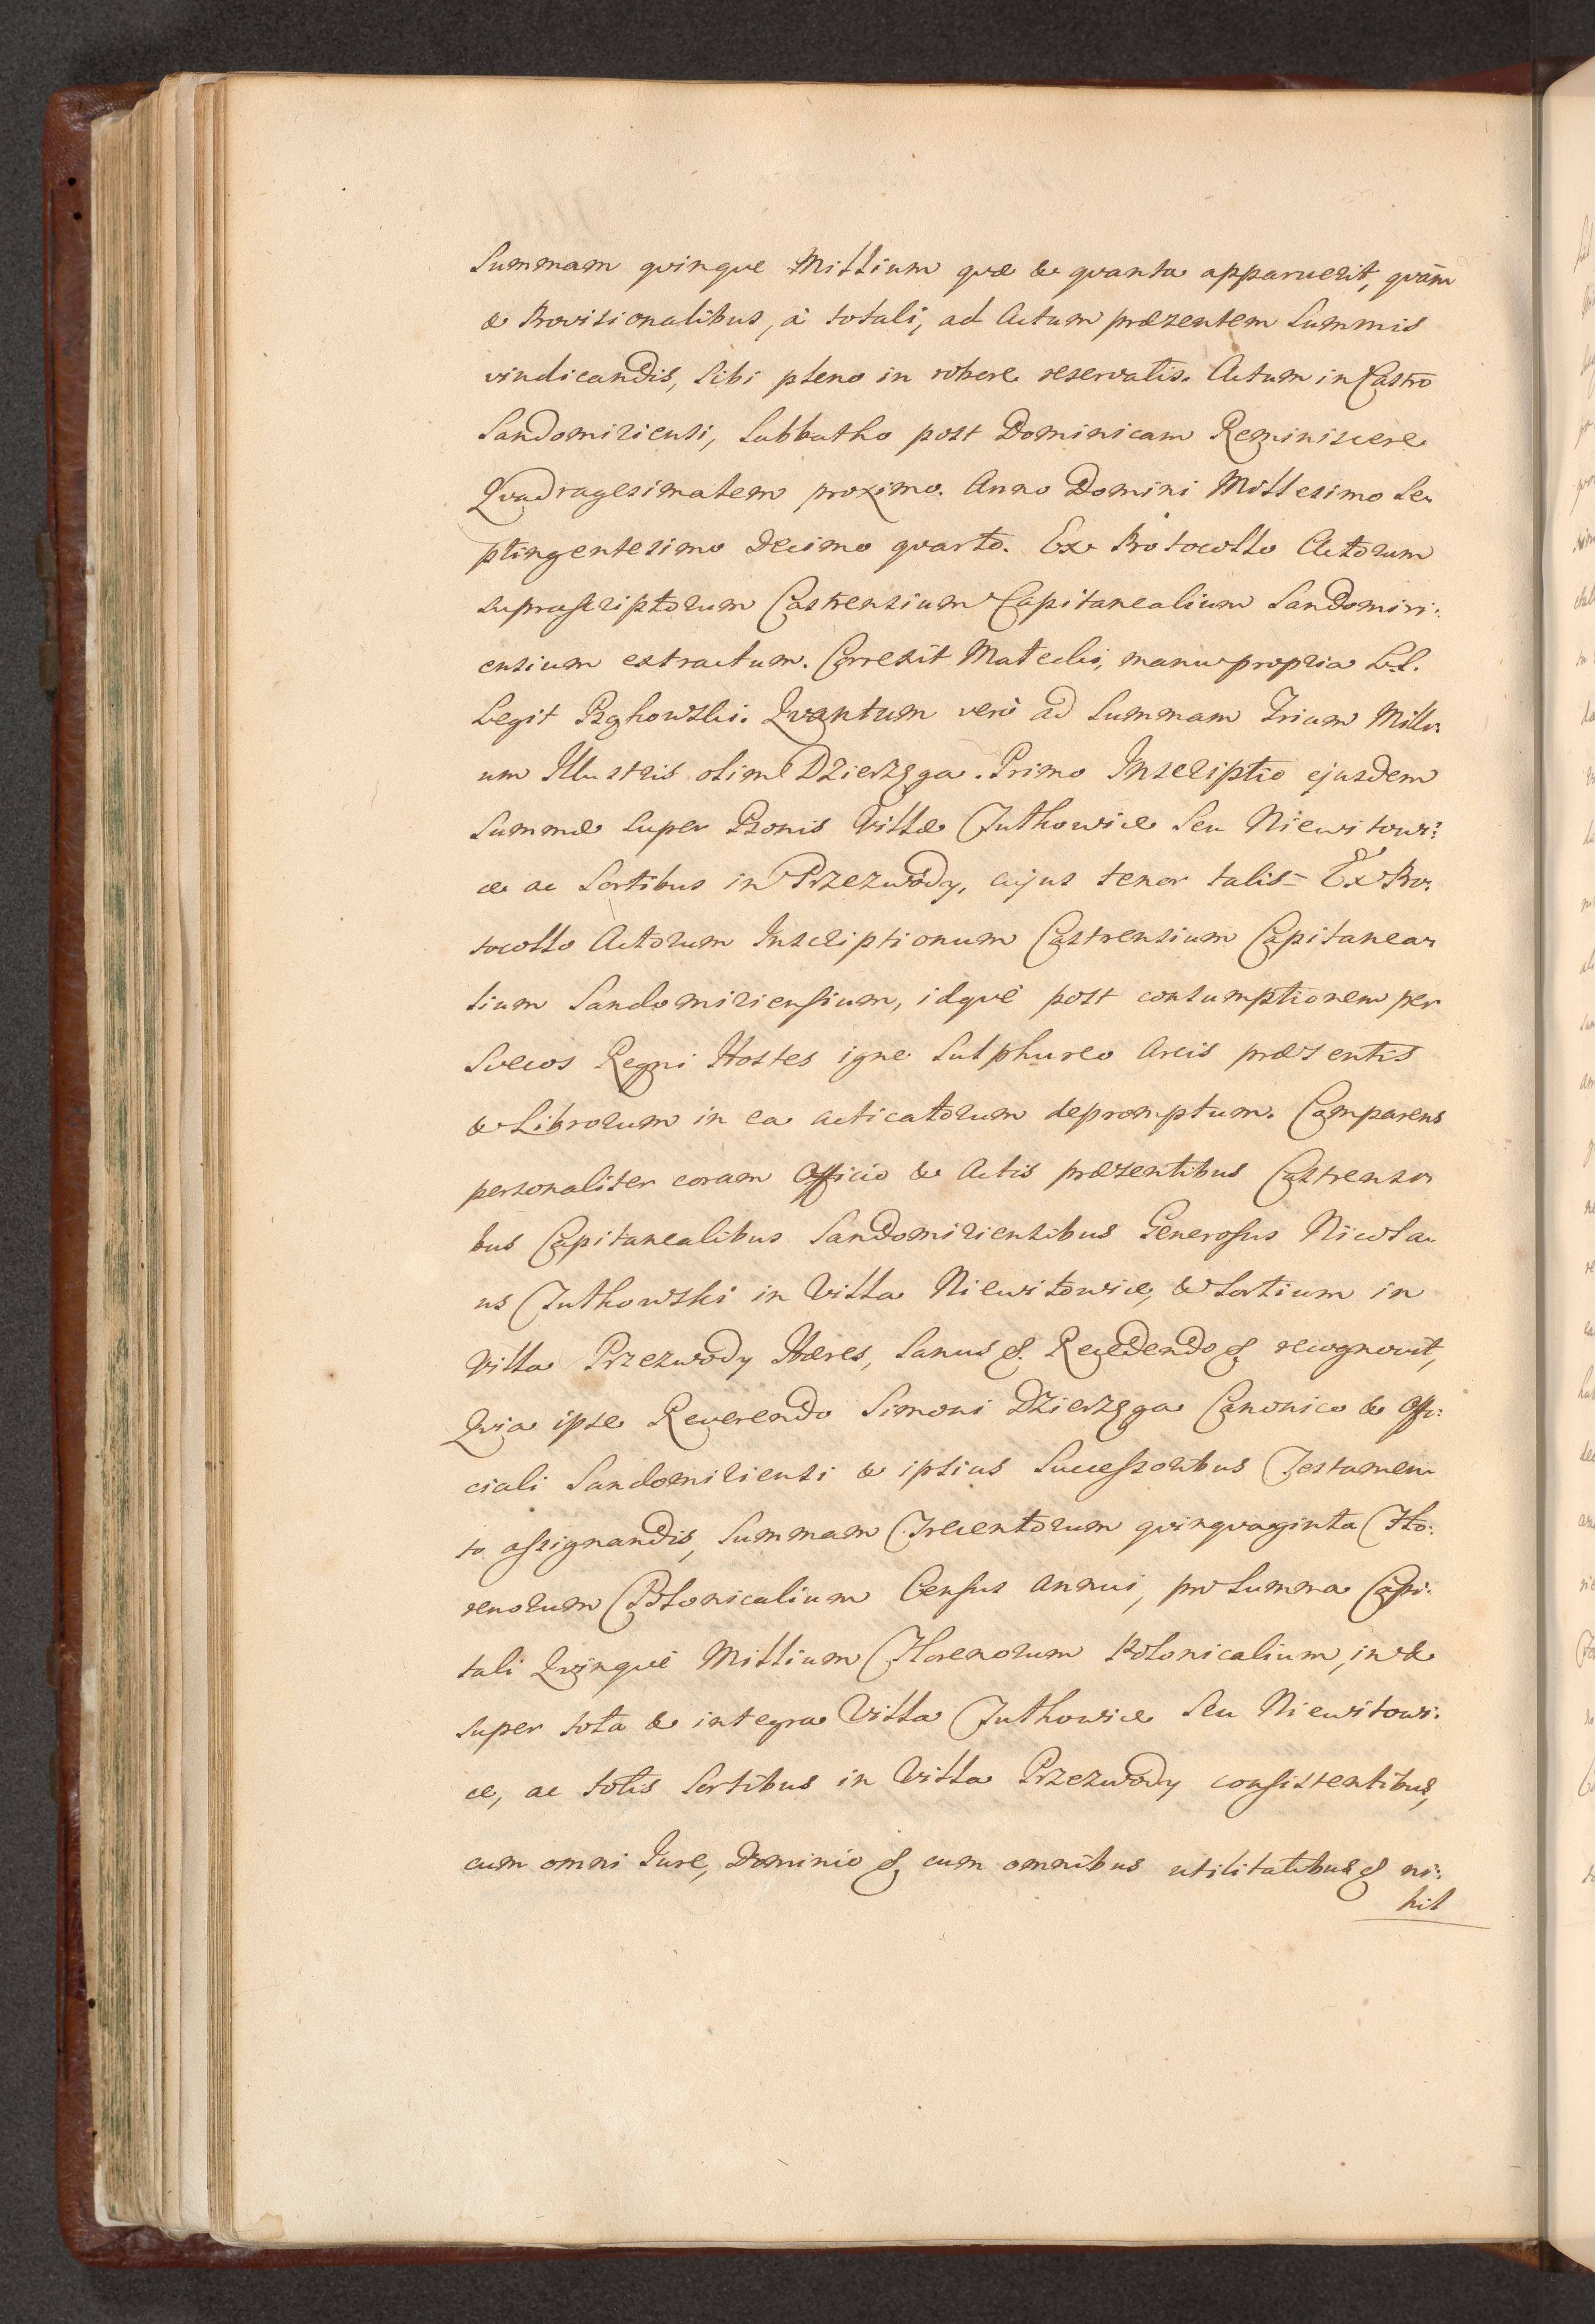 Summam quinque Millium quæ & quanta apparuerit, quàm
& Provisionalibus, à totali, ad Actum præsentem Summis
vindicandis, Sibi pleno in robore reservatis. Actum in Castro
Sandomiriensi, Sabbatho post Dominicam Reminiscere
Quadragesimalem proximo. Anno Domini Millesimo Se-
ptingentesimo Decimo quarto. Ex Protocollo Actorum
suprascriptorum Castrensium Capitanealium Sandomiri:
ensium extractum. Correxit Matecki, manu propria L.S.
Legit Pęghowski. Quantum verò ad Summam Trium Milli-
um Illustris olim Dzierzęga. Primo Inscriptio ejusdem
Summæ super Bonis Villæ Jutkowice Seu Niewitowi:
ce ac Sortibus in Przezwody, cujus tenor talis = Ex Pro-
tocollo Actorum Inscriptionum Castrensium Capitanea-
lium Sandomiriensium, idquè post consumptionem per
Suecos Regni Hostes igne Sulphureo Arcis præsentis
& Librorum in ea acticatorum depromptum. Comparens
personaliter coram Officio & Actis præsentibus Castrensi-
bus Capitanealibus Sandomiriensibus Generosus Nicola-
us Jutkowski in Villa Niewitowice, & Sortium in
Villa Przezwody Hæres, Sanus &. Recedendo & recognovit,
Quia ipse Reverendo Simoni Dzierzęga Canonico & Offi:
ciali Sandomiriensi & ipsius Successoribus Testamen-
to assignandis, Summam Trecentorum quinquaginta Flo:
renorum Polonicalium Census annui, pro Summa Capi-
tali Quinquè Millium Florenorum Polonicalium, in &
super tota & integra Villa Jutkowice Seu Niewitowi-
ce, ac totis Sortibus in Villa Przezwody consistentibus,
cum omni Jure, Dominio & cum omnibus utilitatibus & ni:
hil